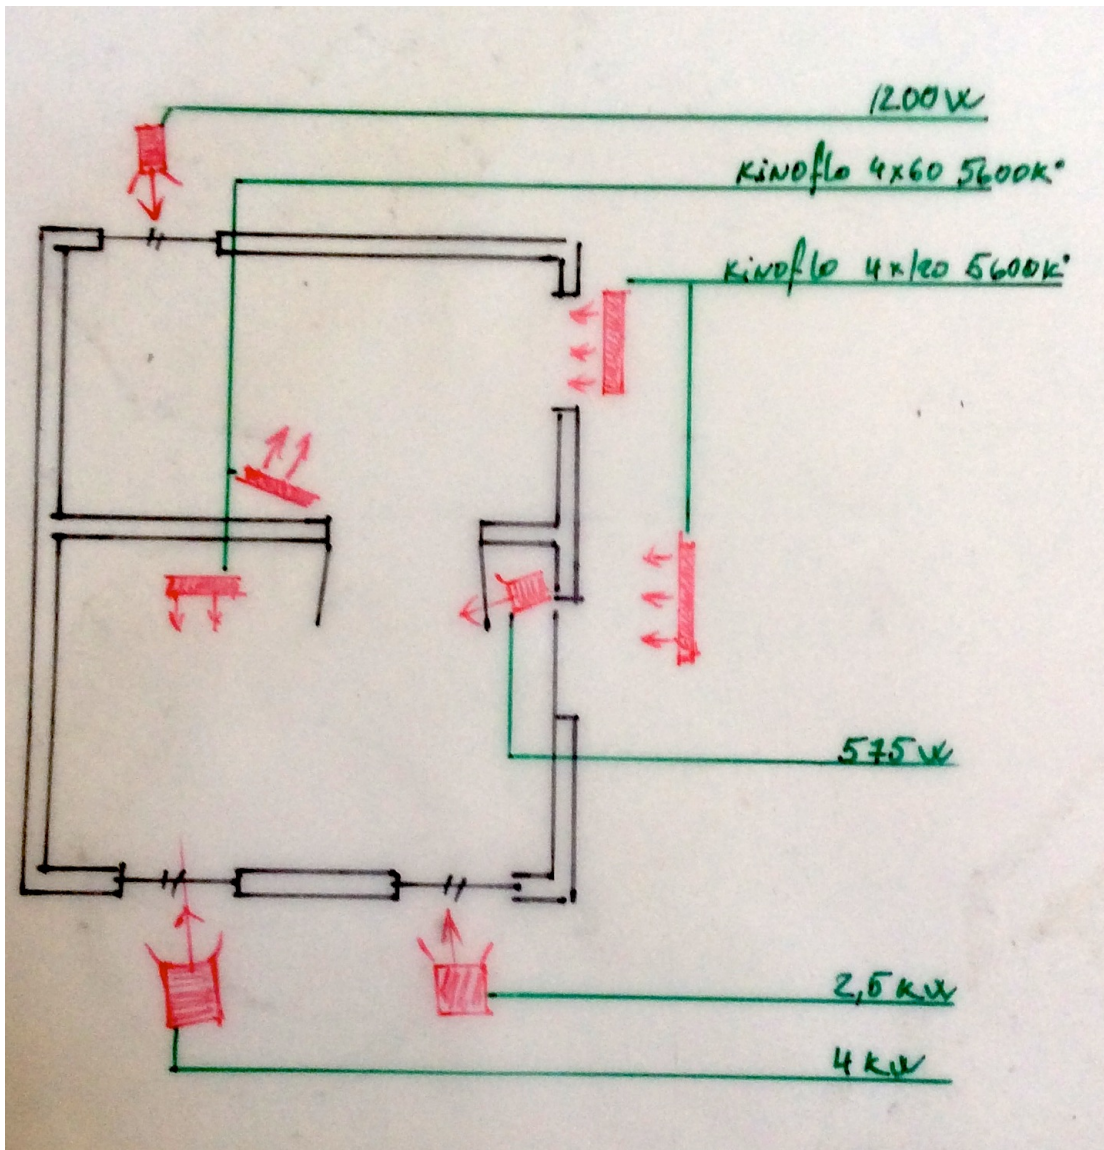 1200W
KiNOflo 4x60 5600K°
KiNOflo 4x120 5600K°
575W
2,5KW
4KW